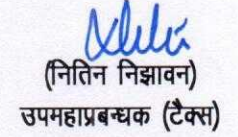 (नितिन निझावन)
उपमहाप्रबन्धक (टैक्स)